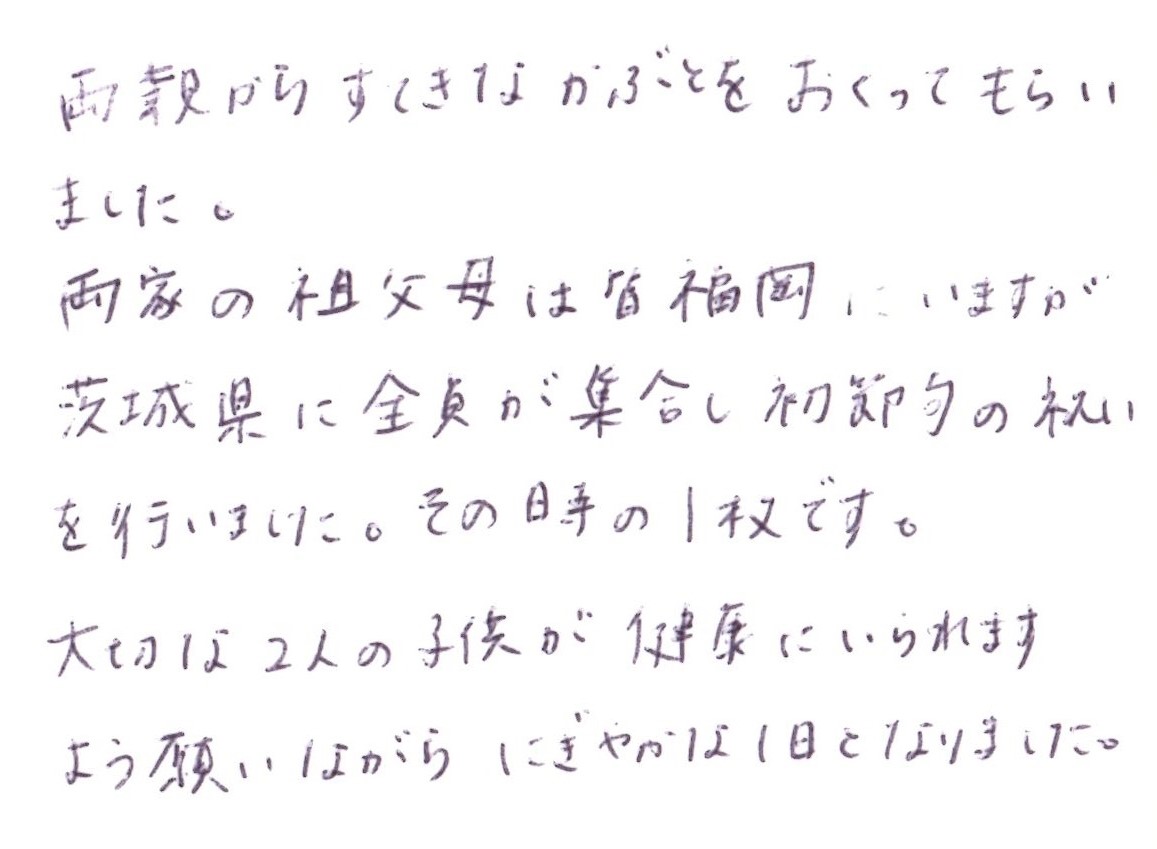 両親からすてきなかぶとをおくってもらい
ました。
両家の祖父母は皆福岡にいますが
茨城県に全員が集合し初節句の祝い
を行いました。その時の1枚です。
大切な2人の子供が健康にいられます
よう願いながらにぎやかな1日となりました。